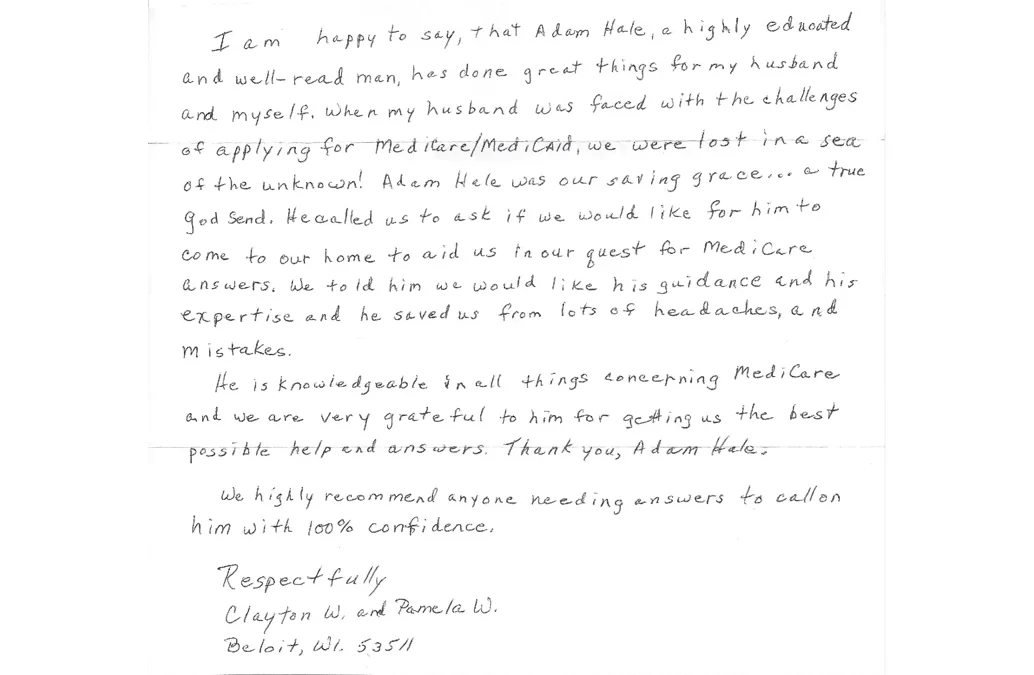 I am happy to say, that Adam Hale, a highly educated
and well-read man, has done great things for my husband
and myself. When my husband was faced with the challenges
of applying for Medicare/MediCAid, we were lost in a sea
of the unknown! Adam Hale was our saving grace... a true
god send. He called us to ask if we would like for him to
come to our home to aid us in our quest for MediCare
answers. We told him we would like his guidance and his
expertise and he saved us from lots of headaches, and
mistakes.
He is knowledgeable in all things concerning MediCare
and we are very grateful to him for getting us the best
possible help and answers. Thank you, Adam Hale.
We highly recommend anyone needing answers to call on
him with 100% confidence.
Respectfully
Clayton W. and Pamela W.
Beloit, WI. 53511